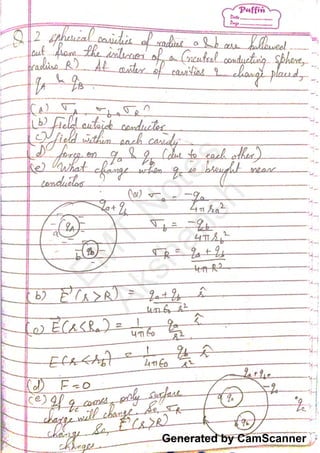 Puffin
Date
Page
Q 2 spherical cavities of radius a & b are hollowed
out from the interior of a (neutral conducting sphere,
radius R). At center of cavities 2 charge placed,
qA & qB.
(a) σa, σb, σR
(b) Field outside conductor
(c) Field within each cavity
(d) force on qa & qb (due to each other)
(e) What change when qc is brought near
conductor
(a) σa = -qa / 4πra²
qa+qb
qA
a
σb = -qb / 4πrb²
b
qb
σR = qa + qb / 4πR²
(b) E⃗(r>R) = qa+qb / 4πε0 r² r̂
(c) E(r<Ra) = 1/4πε0 qa/r² r̂
E(r<rb) = 1/4πε0 qb/r² r̂
(d) F=0
(e) If q comes, only surface
charge will change. So, σR
change. So, E⃗(r>R)
changes.
qa+qb
-qa
qa
qb
qc
Generated by CamScanner